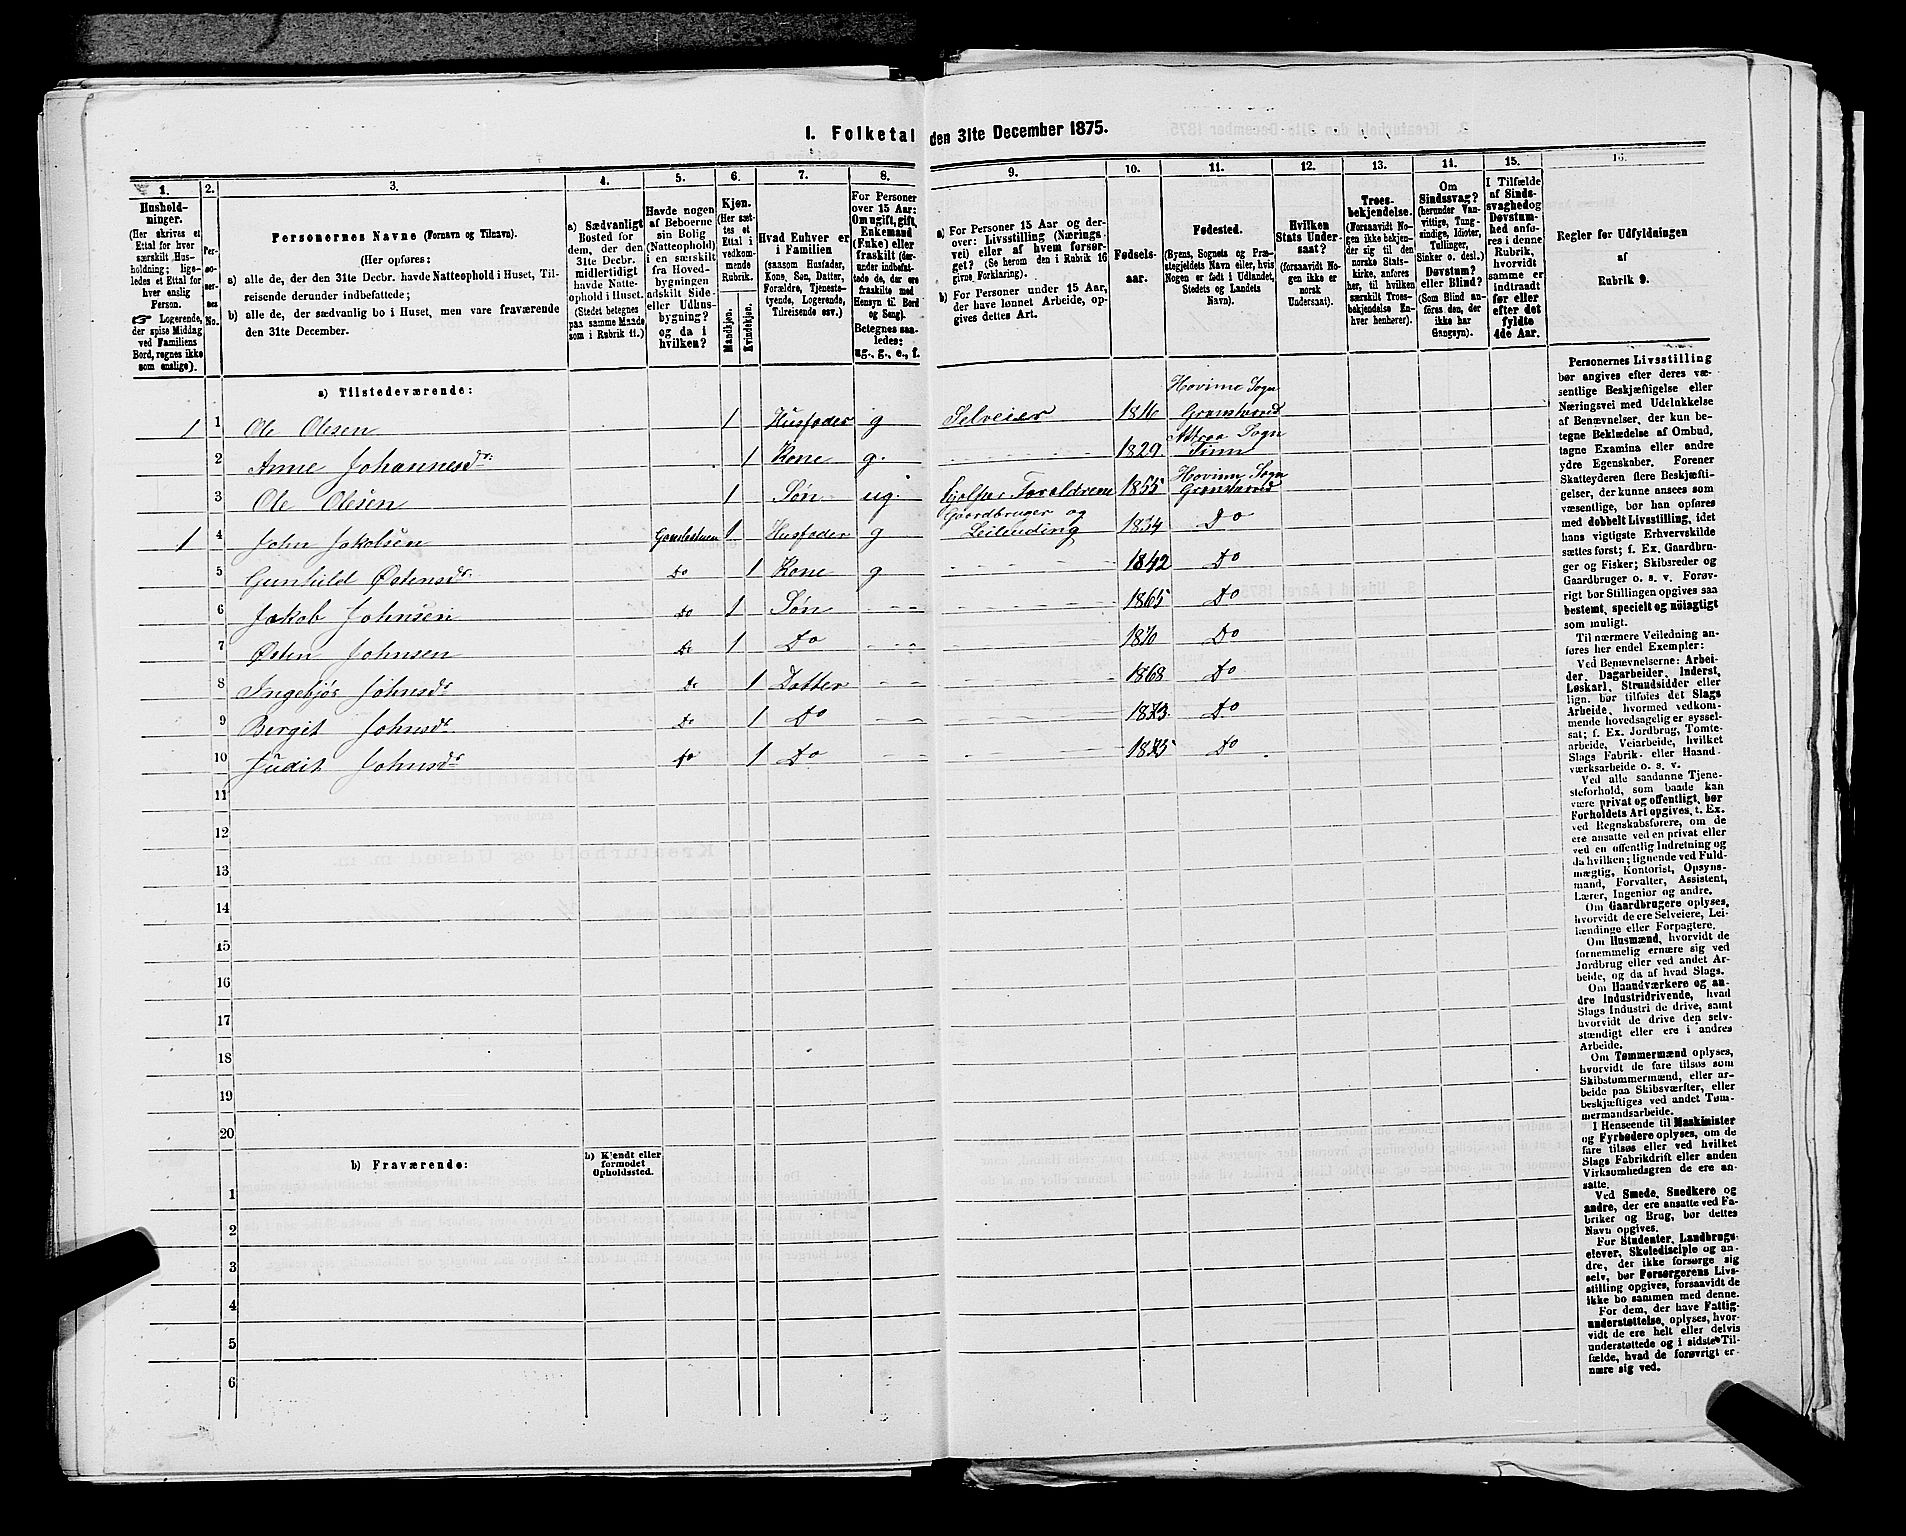 I. Folketal den 31te December 1875.
1. 2. 3. 4. 5. 6. 7. 8. 9. 10. 11. 12. 13. 14. 15. 16.
Husholdninger.
(Her skrives et
Ettal for hver
særskilt Husholdning; ligeledes et Ettal for
hver enslig
Person.
☞ Logerende,
der spise Middag
ved Familiens
Bord, regnes ikke
som enslige).
Personernes No.
Personernes Navne (Fornavn og Tilnavn).
(Her opføres:
a) alle de, der den 31te Decbr. havde Natteophold i Huset, Tilreisende derunder indbefattede;
b) alle de, der sædvanlig bo i Huset, men vare fraværende
den 31te December.
a) Sædvanligt
Bosted for
dem, der den
31te Decbr.
midlertidigt
havde Natteophold i Huset.
(Stedet betegnes
paa samme Maade
som i Rubrik 11.)
Havde nogen
af Beboerne
sin Bolig
(Natteophold)
i en særskilt
fra Hovedbygningen
adskilt Side-
eller Udhusbygning?
og da i
hvilken?
Kjøn.
(Her sættes et
Ettal i
vedkommende
Rubrik.
Mandkjøn.
Kvindekjøn.
Hvad Enhver er
i Familien
(saasom Husfader,
Kone, Søn, Datter,
Forældre, Tjenestetyende, Logerende,
Tilreisende osv.)
For Personer
over 15 Aar:
Om ugift, gift,
Enkemand
(Enke) eller
fraskilt (derunder indbefattede de, der ere
fraskilte med
Hensyn til Bord
og Seng).
Betegnes saaledes:
ug., g., e., f.
a) For Personer 15 Aar og derover: Livsstilling (Næringsvei) eller af hvem forsørget? (Se herom den i Rubrik 16
givne Forklaring).
b) For Personer under 15 Aar,
der have lønnet Arbeide, opgives dettes Art.
Fødselsaar.
Fødested.
(Byens, Sognets og Præstegjeldets Navn eller, hvis
Nogen er født i Udlandet,
Stedets og Landets
Navn).
Hvilken
Stats Undersaat?
(forsaavidt Nogen ikke er
norsk
Undersaat).
Troesbekjendelse.
(Forsaavidt Nogen ikke bekjender sig til den
norske Statskirke, anføres
her, til hvilken
særskilt Troesbekjendelse Enhver henhører).
Om
Sindssvag?
(herunder Vanvittige, Tungsindige, Idioter,
Tullinger,
Sinker o. desl.)
Døvstum?
eller Blind?
(Som Blind anføres den, der
ikke har
Gangsyn).
I Tilfælde
af Sindssvaghed og
Døvstumhed anføres i denne
Rubrik,
hvorvidt
samme er
indtraadt
før eller
efter det
fyldte
4de Aar.
Regler for Udfyldningen
af
Rubrik 9.
a) Tilstedeværende:
1 1 Ole Olesen 1 Husfader g Selveier 1816 Hovinn Sogn Gransherred
2 Anne Johannesdr 1 Kone g. 1829 Attraa Sogn Tinn
3 Ole Olesen 1 Søn ug. Hjælper Forældrene 1855 Hovinn Sogn Gransherred
1 4 John Jakobsen 1 Husfader g Gaardbruger og Leilending 1834 Do
5 Gunhild Østensdr Do 1 Kone g 1842 Do
6 Jakob Johnsen Do 1 Søn 1865 Do
7 Østen Johnsen Do 1 Do 1870 Do
8 Ingebjør Johnsdr Do 1 Datter 1868 Do
9 Bergit Johnsdr Do 1 Do 1873 Do
10 Judit Johnsdr Do 1 Do 1875 Do
11
12
13
14
15
16
17
18
19
20
b) Fraværende:
b) Kjendt eller
formodet
Opholdssted.
1
2
3
4
5
6
Personernes Livsstilling
bør angives efter deres væsentlige Beskjæftigelse eller
Næringsvei med Udelukkelse
af Benævnelser, der kun betegne Beklædelse af Ombud,
tagne Examina eller andre
ydre Egenskaber. Forener
Skatteyderen flere Beskjæftigelser, der kunne ansees som
væsentlige, bør han opføres
med dobbelt Livsstilling, idet
hans vigtigste Erhvervskilde
sættes først; f. Ex. Gaardbruger og Fisker; Skibsreder og
Gaardbruger o. s. v. Forøvrigt bør Stillingen opgives saa
bestemt, specielt og nøiagtigt
som muligt.
Til nærmere Veiledning anføres her endel Exempler:
Ved Benævnelserne: Arbeider, Dagarbeider, Inderst,
Løskarl, Strandsidder eller
lign. bør tilføies det Slags
Arbeide, hvormed vedkommende hovedsagelig er sysselsat; f. Ex. Jordbrug, Tomtearbeide, Veiarbeide, hvilket
Slags Fabrik- eller Haandværksarbeide o. s. v.
Ved alle saadanne Tjenesteforhold, som baade kan
være privat og offentligt, bør
Forholdets Art opgives, t. Ex.
ved Regnskabsførere, om de
ere ansatte ved en privat eller
ved en offentlig Indretning og
da hvilken; lignende ved Fuldmægtig, Kontorist, Opsynsmand, Forvalter, Assistent,
Lærer, Ingeniør og andre.
Om Gaardbrugere oplyses,
hvorvidt de ere Selveiere, Leilændinge eller Forpagtere.
Om Husmænd, hvorvidt de
fornemmelig ernære sig ved
Jordbrug eller ved andet Arbeide, og da af hvad Slags.
Om Haandværkere og andre Industridrivende, hvad
Slags Industri de drive, samt
hvorvidt de drive den selvstændigt eller ere i andres
Arbeide.
Om Tømmermænd oplyses,
hvorvidt de fare tilsøs som
Skibstømmermænd, eller arbeide paa Skibsværfter, eller
beskjæftiges ved andet Tømmermandsarbeide.
I Henseende til Maskinister
og Fyrbødere oplyses, om de
fare tilsøs eller ved hvilket
Slags Fabrikdrift eller anden
Virksomhedsgren de ere ansatte.
Ved Smede, Snedkere og
andre, der ere ansatte ved Fabriker og Brug, bør dettes
Navn opgives.
For Studenter, Landbrugselever, Skoledisciple og andre, der ikke forsørge sig
selv, bør Forsørgerens Livsstilling opgives, forsaavidt de
ikke bo sammen med denne.
For dem, der have Fattigunderstøttelse, oplyses, hvorvidt de ere helt eller delvis
understøttede og i sidste Tilfælde, hvad de forøvrigt ernære sig ved.